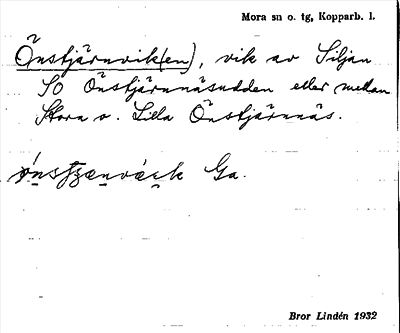 Mora sn o. tg, Kopparb. l.
Önstjärnvik(en), vik av Siljan
SO Önstjärnnäsudden eller mellan
Stora o. Lilla Önstjärnnäs.
Ga.
Bror Lindén 1932